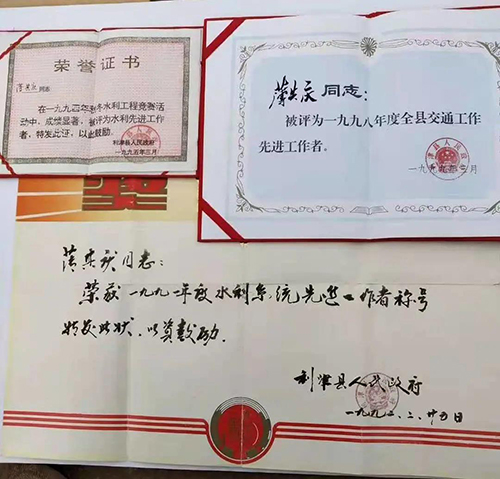 荣誉证书
同志
在一九九四年冬水利工程竞赛活
动中，成绩显著，被评为水利先进工作
者，特发此证，以此鼓励。
利津县人民政府
一九九五年三月
同志：
被评为一九九八年度全县交通工作
先进工作者。
一九九九年 月
同志：
荣获一九九一年度水利系统先进工作者称号
特发此状，以资鼓励。
利津县人民政府
一九九二、二、廿五日